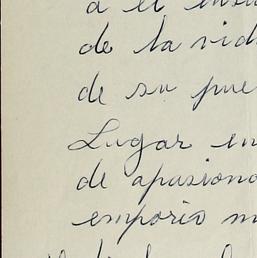 a el
de la vid
de su pue
Lugar en
de apasiona
emporio m